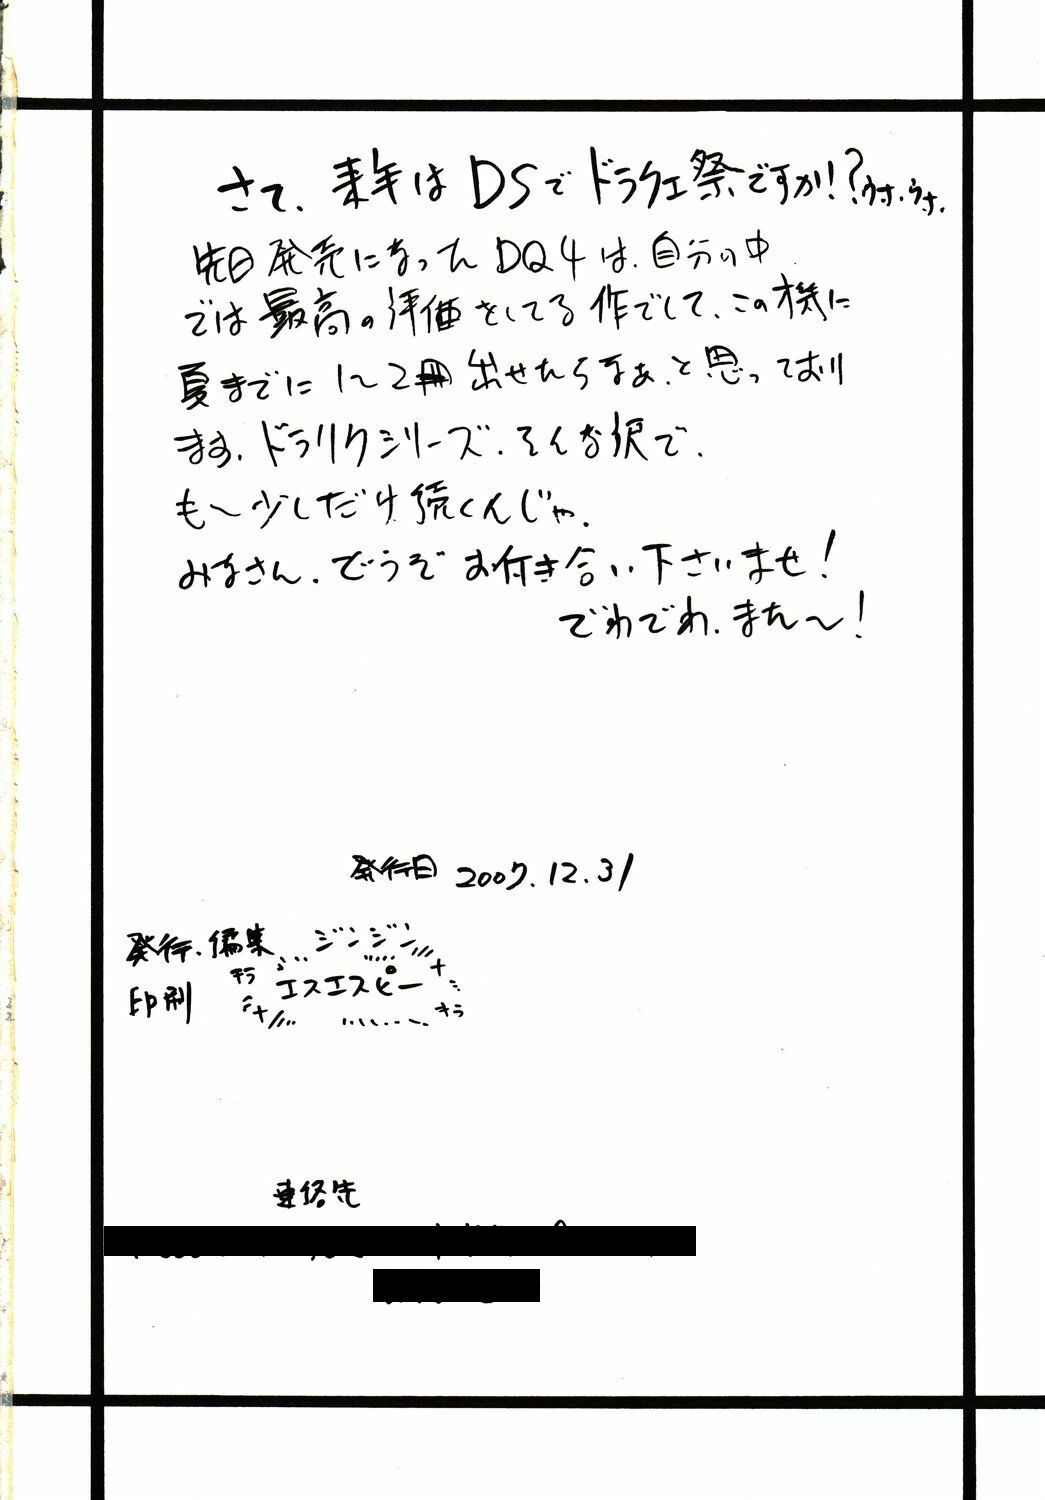 さて、来年はDSでドラクエ祭ですか!?ウサ・ウサ.
先日発売になったDQ4は、自分の中
では最高の評価をしてる作でして、この機に
夏までに1〜2冊出せたらなぁ、と思っており
ます。ドラリクシリーズ、そんな訳で、
も〜少しだけ続くんじゃ。
みなさん、どうぞお付き合い下さいませ!
でわでわ、また〜!
発行日 2007.12.31
発行・編集 ジンジン
印刷 キラ エスエスピー キラ
連絡先